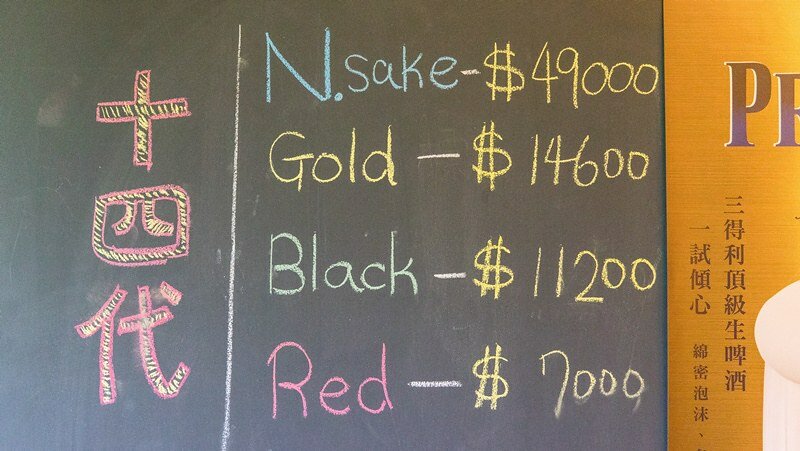 十四代
N.sake-$49000
Gold-$14600
Black-$11200
Red-$7000
三得利頂級生啤酒
一試傾心
綿密泡沫、